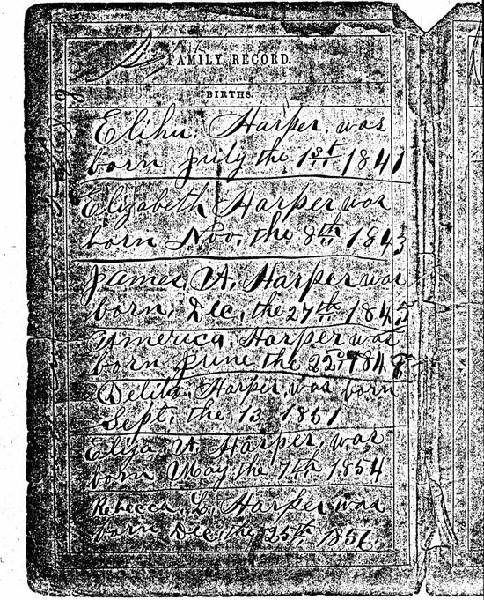 FAMILY RECORD.
BIRTHS.
Elihu. Harper. was
born July the 1st 1841
Elizabeth Harper was
born Nov. the 8th 1843
James A. Harper was
born, Dec, the 27th 1845
America, Harper was
born June the 22d 1848
Harper, was born
Sept. the 13 1851
Eliza A. Harper, was
born May the 7th 1854
Rebecca, L. Harper was
born Dec, the 25th 1856